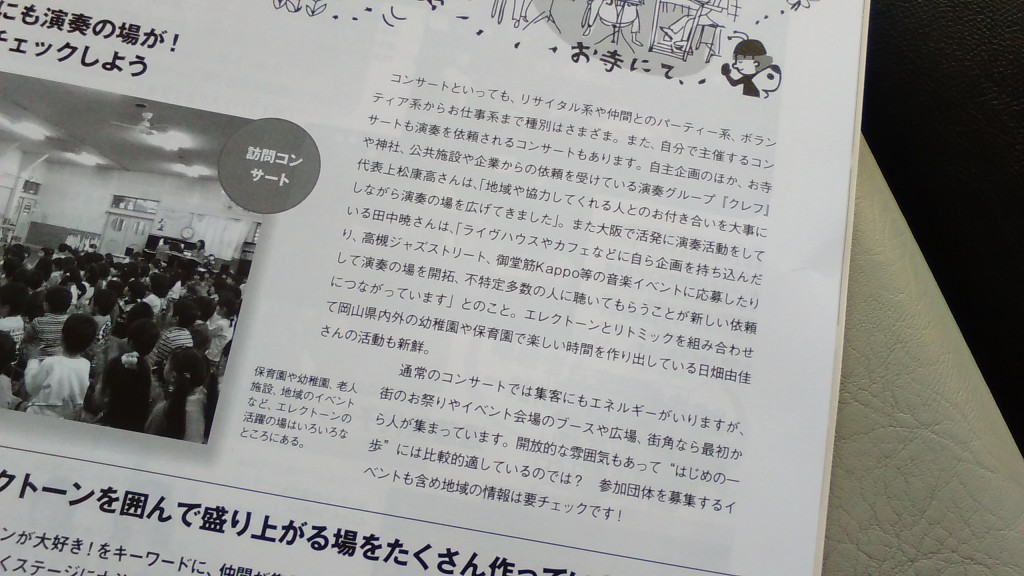 にも演奏の場が！
チェックしよう
お寺にて、
訪問コン
サート
コンサートといっても、リサイタル系や仲間とのパーティー系、ボラン
ティア系からお仕事系まで種別はさまざま。また、自分で主催するコン
サートも演奏を依頼されるコンサートもあります。自主企画のほか、お寺
や神社、公共施設や企業からの依頼を受けている演奏グループ『クレフ』
代表上松康高さんは、「地域や協力してくれる人とのお付き合いを大事に
しながら演奏の場を広げてきました」。また大阪で活発に演奏活動をして
いる田中暁さんは、「ライヴハウスやカフェなどに自ら企画を持ち込んだ
り、高槻ジャズストリート、御堂筋Kappo等の音楽イベントに応募したり
して演奏の場を開拓、不特定多数の人に聴いてもらうことが新しい依頼
につながっています」とのこと。エレクトーンとリトミックを組み合わせ
て岡山県内外の幼稚園や保育園で楽しい時間を作り出している日畑由佳
さんの活動も新鮮。
通常のコンサートでは集客にもエネルギーがいりますが、
街のお祭りやイベント会場のブースや広場、街角なら最初か
ら人が集まっています。開放的な雰囲気もあって“はじめの一
歩”には比較的適しているのでは？　参加団体を募集するイ
ベントも含め地域の情報は要チェックです！
保育園や幼稚園、老人
施設、地域のイベント
など、エレクトーンの
活躍の場はいろいろな
ところにある。
クトーンを囲んで盛り上がる場をたくさん作って
ンが大好き！をキーワードに、仲間が
くステージに